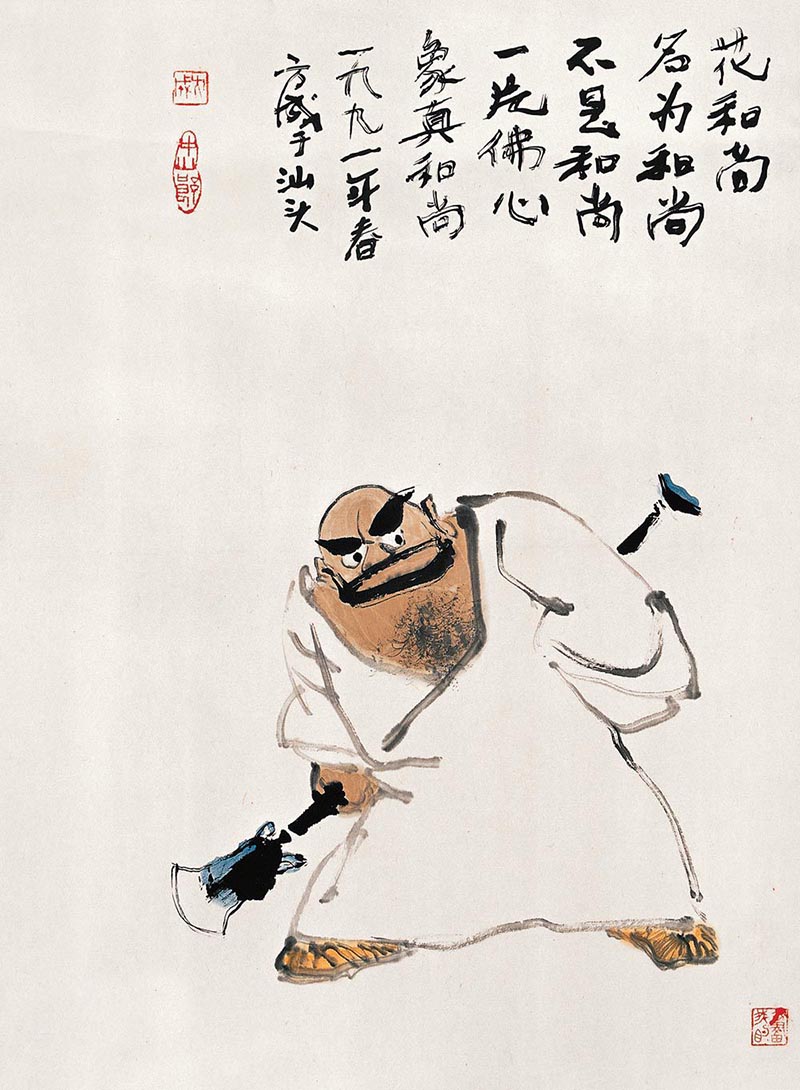 花和尚
名为和尚
不是和尚
一片佛心
象真和尚
一九九一年春
方成于汕头
方成